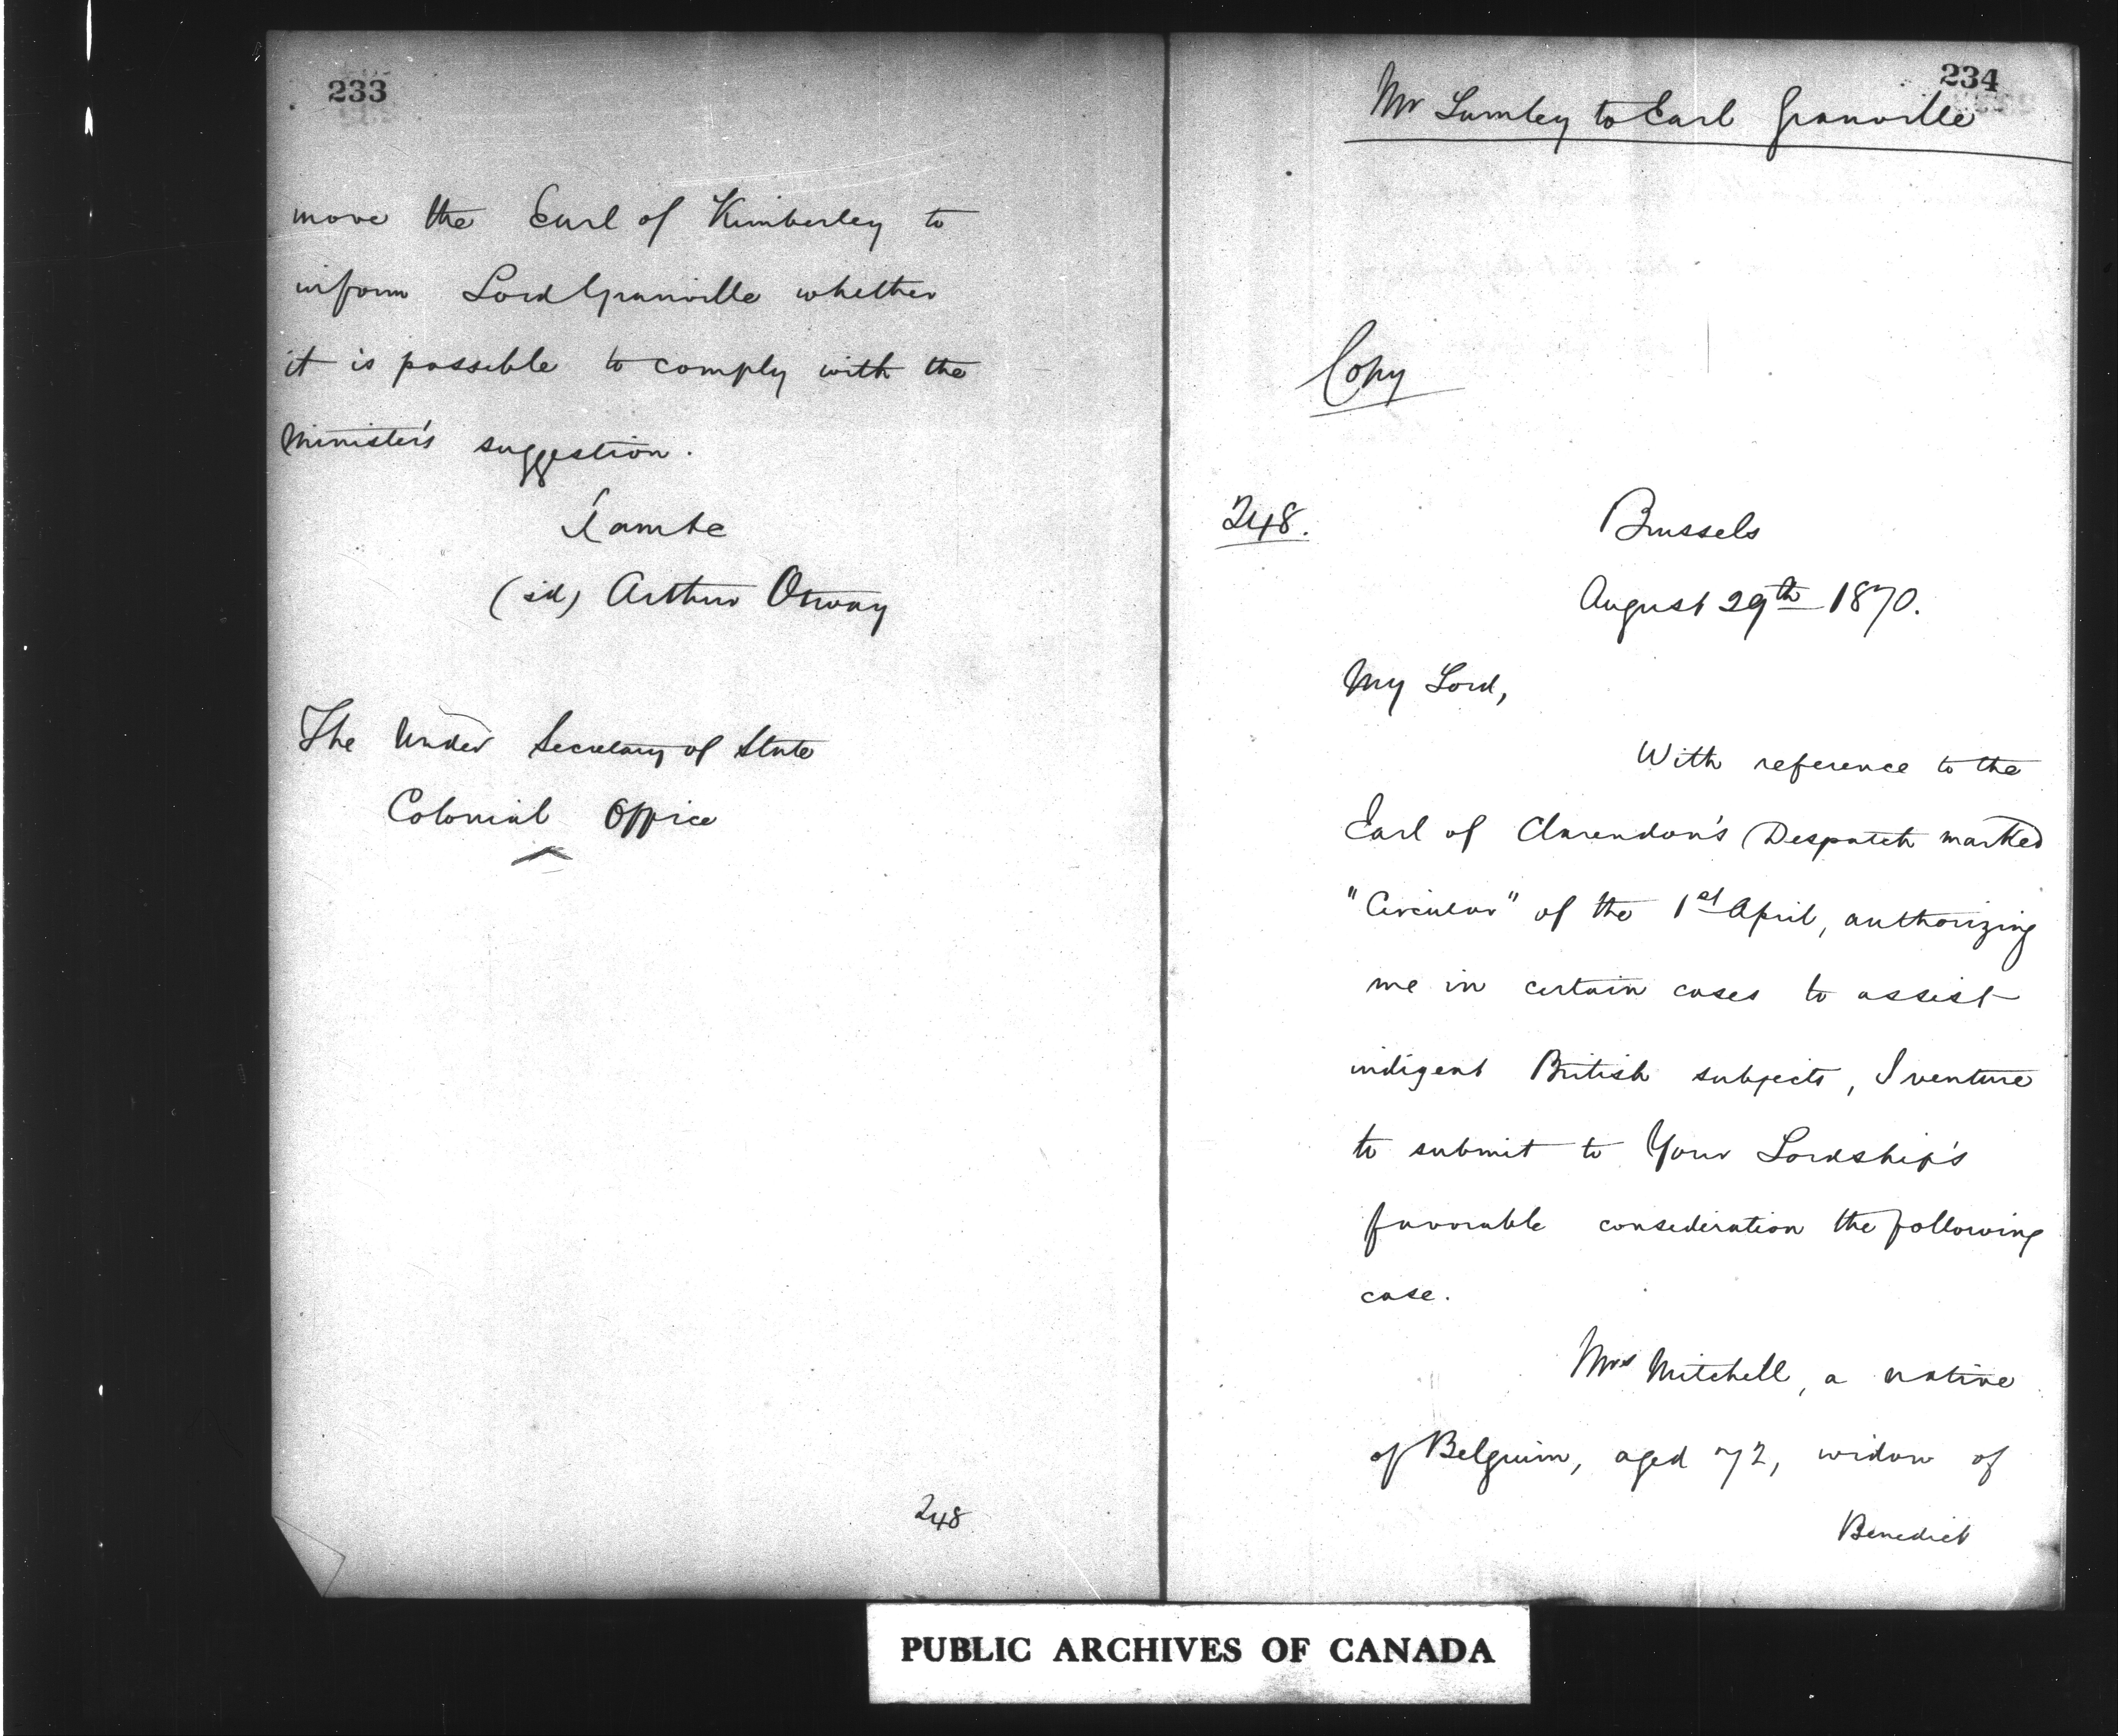 233
move the Earl of Kimberley to
inform Lord Granville whether
it is possible to comply with the
Minister's suggestion.
I am &c
(sd) Arthur Otway
The Under Secretary of State
Colonial Office
248
234
Mr Lumley to Earl Granville
Copy
248.
Brussels
August 29th 1870.
My Lord,
With reference to the
Earl of Clarendon's Despatch marked
"Circular" of the 1st April, authorizing
me in certain cases to assist
indigent British subjects, I venture
to submit to Your Lordship's
favorable consideration the following
case.
Mrs Mitchell, a native
of Belguim, aged 72, widow of
Benedict
PUBLIC ARCHIVES OF CANADA